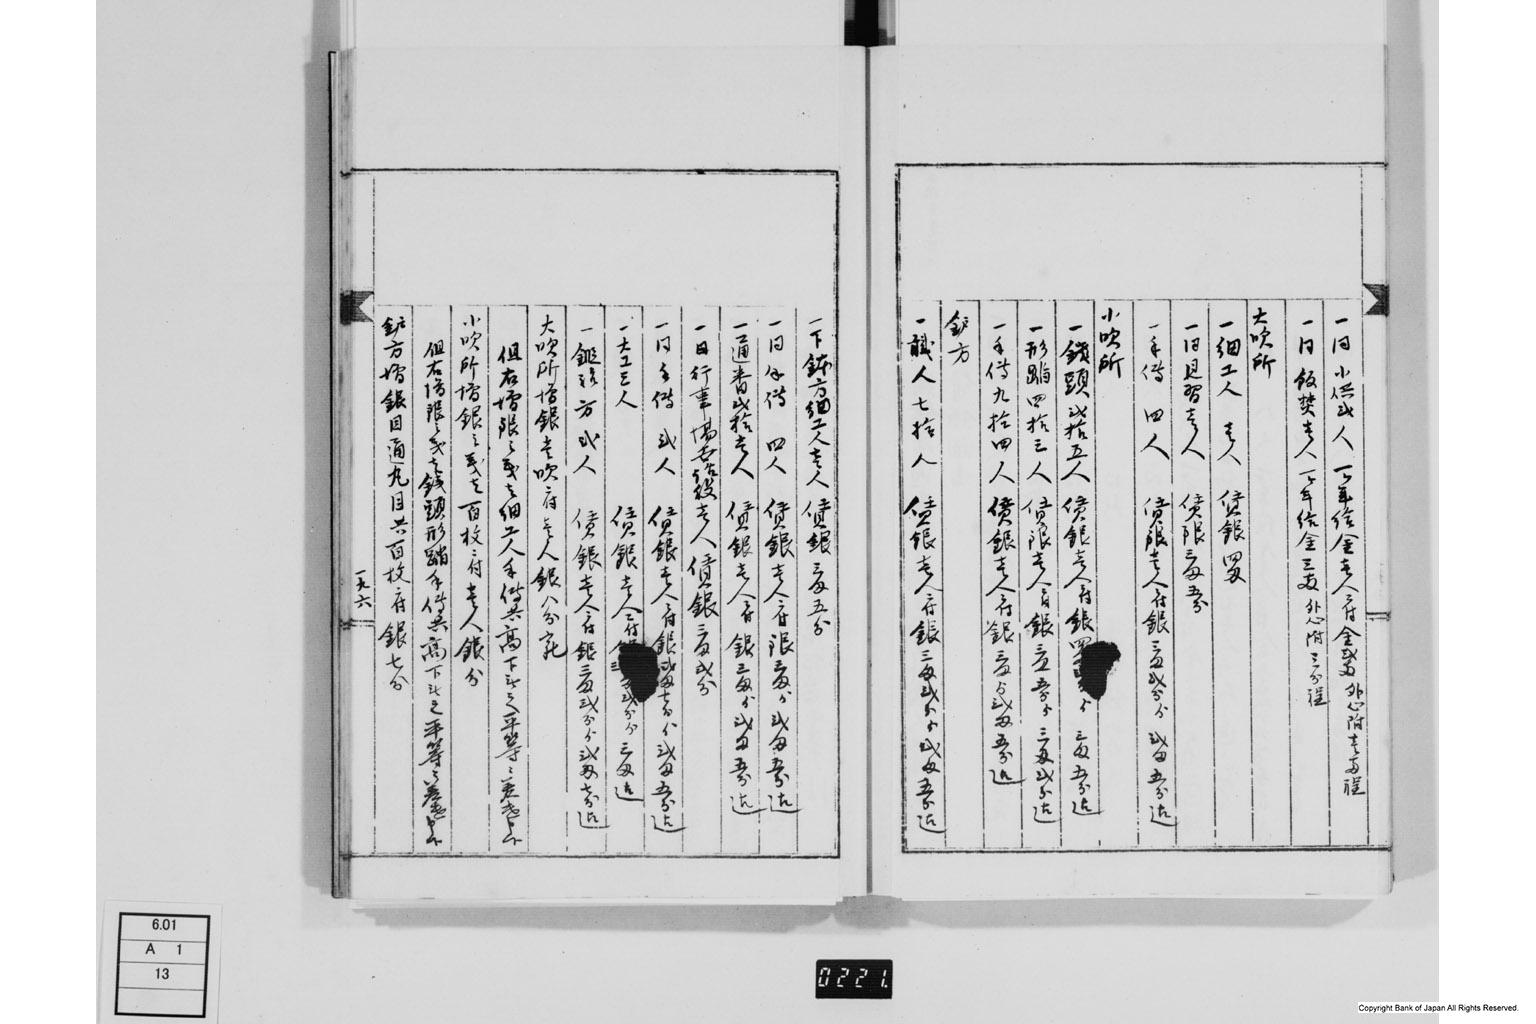 一同小供弐人 一ヶ年給金壱人ニ付金弐両外心附壱両程
一同飯焚壱人 一ヶ年給金三両外心附二分程
大吹所
一細工人 壱人 賃銀四匁
一同見習壱人 賃銀三匁五分
一手伝 四人 賃銀壱人ニ付銀三匁弐分ゟ弐匁五分迄
小吹所
一銭頭弐拾五人 賃銀壱人ニ付銀四 ゟ三匁五分迄
一形踏四拾三人 賃銀壱人ニ付銀三匁五分ゟ三匁弐分迄
一手伝九拾四人 賃銀壱人ニ付銀三匁ゟ弐匁五分迄
鈩方
一職人七拾人 賃銀壱人ニ付銀三匁弐分ゟ弐匁五分迄
一下鉢方細工人壱人 賃銀三匁五分
一同手伝 四人 賃銀壱人ニ付銀三匁ゟ弐匁五分迄
一通番弐拾壱人 賃銀壱人ニ付銀三匁ゟ弐匁五分迄
一同行事場世話役壱人 賃銀三匁弐分
一同手伝 弐人 賃銀壱人ニ付銀弐匁七分ゟ弐匁五分迄
一大工三人 賃銀壱人ニ付 弐分ゟ三匁迄
一 方弐人 賃銀壱人ニ付銀三匁弐分ゟ弐匁七分迄
大吹所増銀壱吹ニ付壱人銀八分宛
但右増銀之義は細工人手伝共高下無之平等ニ差遣申候
小吹所増銀之義は百枚ニ付壱人銀 分
但右増銀之義は銭頭形踏手伝共高下無之平等ニ差遣申候
鈩方増銀目通九目共百枚ニ付銀七分
一九六
6.01
A 1
13
0221.
Copyright Bank of Japan All Rights Reserved.